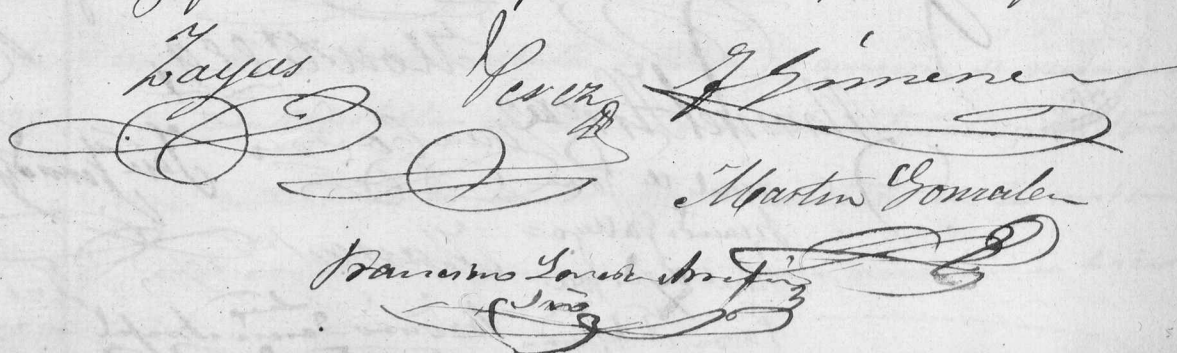 Zayas Perez J Gimenez
Martin Gonzalez
Francisco
Srio